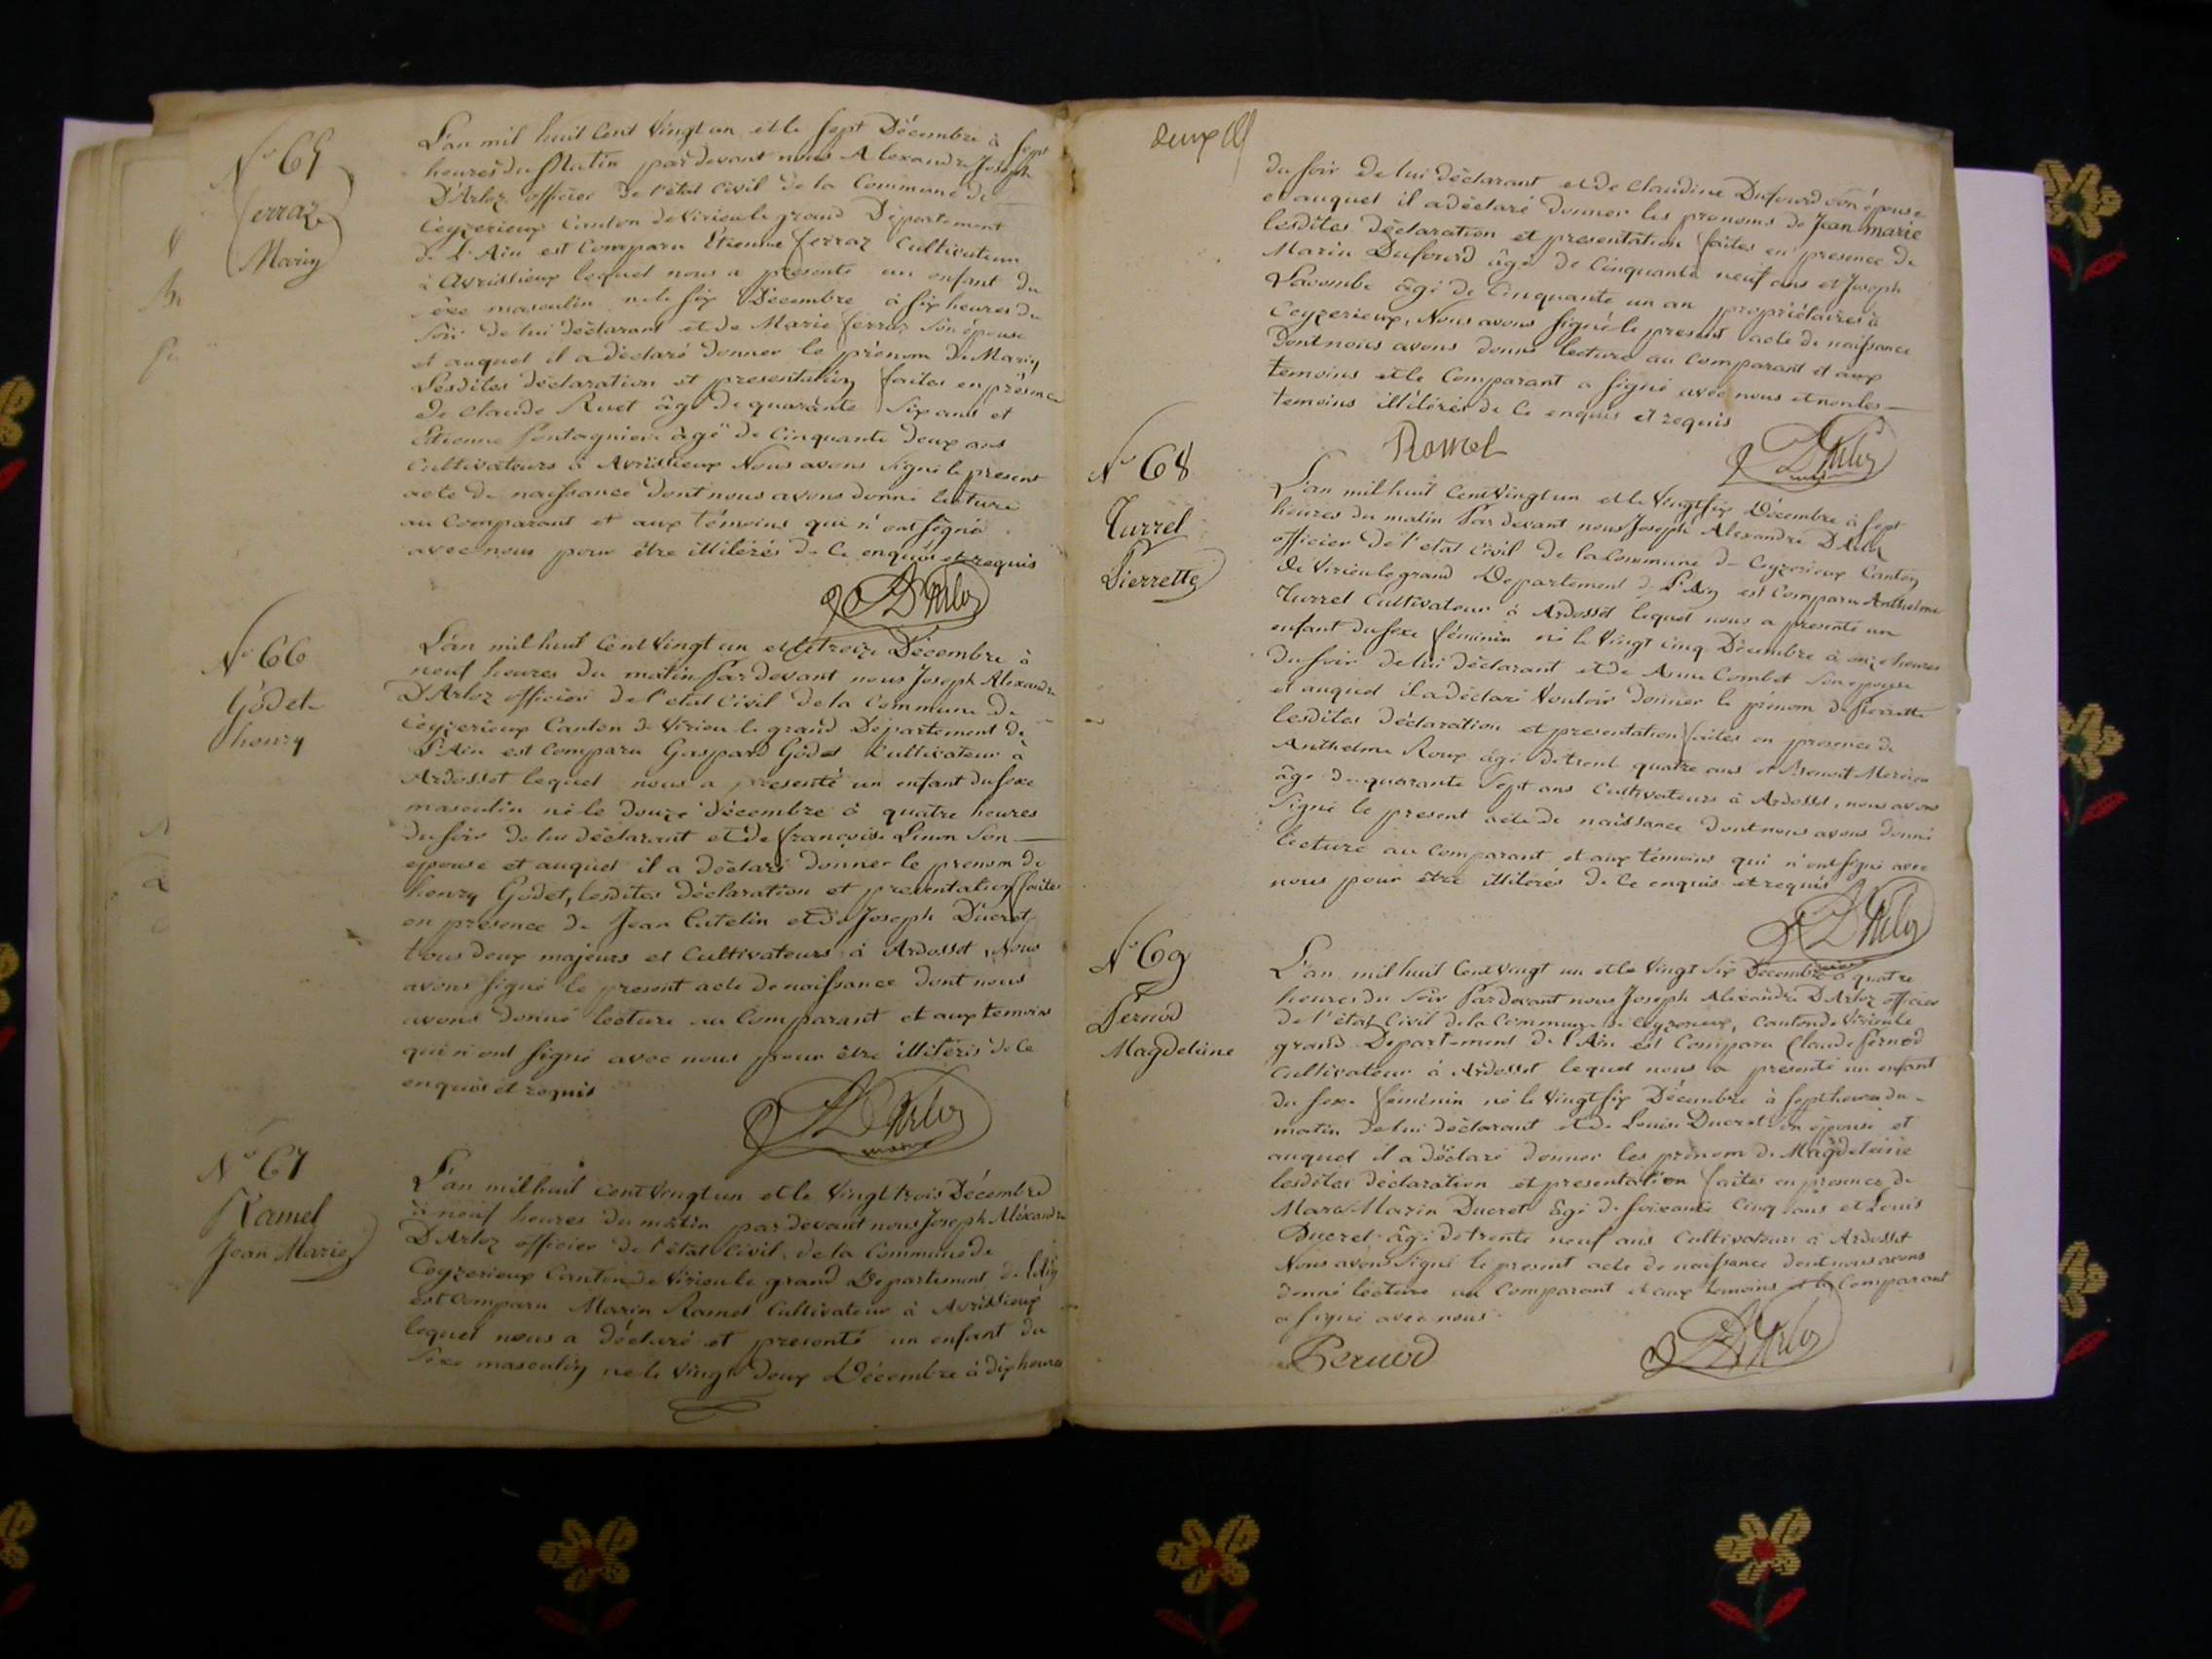 N° 65
ferraz
Marin
L'an mil huit Cent Vingt un et le sept Décembre à sept
heures du Matin par devant nous Alexandre Joseph
D'Arloz officier de l'état Civil de la Commune de
Ceyzerieux Canton de Virieu le grand Département
de L'Ain est Comparu Étienne ferraz Cultivateur
à Avrissieux lequel nous a présenté un enfant du
sexe masculin né le six Décembre à six heures du
soir de lui déclarant et de Marie ferraz son épouse
et auquel il a déclaré donner le prénom de Marin
Lesdites déclaration et presentation faites en présence
de Claude Ruet âgé de quarante six ans et
Etienne Pontagnieu âgé de Cinquante deux ans
Cultivateurs à Avrissieux Nous avons signé le présent
acte de naissance dont nous avons donné lecture
au Comparant et aux témoins qui n'ont signé
avec nous pour être illitérés de Ce enquis et requis
D'Arloz
N° 66
Godet
henry
L'an mil huit Cent Vingt un et le treize Décembre à
neuf heures du matin Par devant nous Joseph Alexandre
D'Arloz officier de l'etat Civil de la Commune de
Ceyzerieux Canton de Virieu le grand Département de
L'Ain est Comparu Gaspard Godet Cultivateur à
Ardosset lequel nous a presenté un enfant du sexe
masculin né le douze décembre à quatre heures
du soir de lui déclarant et de françoise Linon Son
epouse et auquel il a déclaré donner le prenom de
henry Godet, lesdites déclaration et presentation faites
en présence de Jean Cutelin et de Joseph Ducret
tous deux majeurs et Cultivateurs à Ardosset, Nous
avons signé le present acte de naissance dont nous
avons donné lecture au Comparant et aux temoins
qui n'ont signé avec nous pour être illitérés de Ce
enquis et requis
D'Arloz
maire
N° 67
Ramel
Jean Marie
L'an mil huit Cent Vingt un et le Vingt trois Décembre
à neuf heures du matin par devant nous Joseph Alexandre
D'Arloz officier de l'état Civil de la Commune de
Ceyzerieux Canton de Virieu le grand Departement de l'Ain
est Comparu Marin Ramel Cultivateur à Avrissieux
lequel nous a déclaré et presenté un enfant du
sexe masculin né le Vingt deux Décembre à dix heures
deux
du soir de lui déclarant et de Claudine Dufourd son épouse
et auquel il a déclaré donner les prenoms de Jean marie
lesdites déclaration et presentation faites en présence de
Marin Dufourd âgé de Cinquante neuf ans et Joseph
Lacombe âgé de Cinquante un an propriétaires à
Ceyzerieux, Nous avons signé le present acte de naissance
dont nous avons donné lecture au Comparant et aux
temoins et le Comparant a signé avec nous et non les
temoins illitérés de Ce enquis et requis
Ramel
D'Arloz
N° 68
Turrel
Pierrette
L'an mil huit Cent Vingt un et le Vingt six Décembre à sept
heures du matin Par devant nous Joseph Alexandre D'Arloz
officier de l'etat Civil de la Commune de Ceyzerieux Canton
de Virieu le grand Departement de L'Ain est Comparu Anthelme
Turrel Cultivateur à Ardosset lequel nous a presenté un
enfant du sexe féminin né le Vingt cinq Décembre à onze heures
du soir de lui déclarant et de Anne Combet Son epouse
et auquel il a déclaré Vouloir donner le prénom de Pierrette
lesdites déclaration et presentation faites en presence de
Anthelme Roux âgé de trente quatre ans et Benoit Mercier
âgé de quarante sept ans Cultivateurs à Ardosset, nous avons
Signé le present acte de naissance dont nous avons donné
lecture au Comparant et aux témoins qui n'ont signé avec
nous pour être illitérés de Ce enquis et requis
D'Arloz
N° 69
Pernod
Magdeleine
L'an mil huit Cent Vingt un et le Vingt Six Décembre à quatre
heures du Soir Par devant nous Joseph Alexandre D'Arloz officier
de l'état Civil de la Commune de Ceyzerieux, Canton de Virieu le
grand Departement de l'Ain est Comparu Claude Pernod
Cultivateur à Ardosset lequel nous a presenté un enfant
du sexe féminin né le Vingt six Décembre à sept heures du
matin de lui déclarant et de Louise Ducret son épouse et
auquel il a déclaré donner les prénom de Magdeleine
lesdites déclaration et presentation faites en presence de
Marc Marin Ducret âgé de soixante Cinq ans et Louis
Ducret âgé de trente neuf ans Cultivateurs à Ardosset
Nous avons Signé le present acte de naissance dont nous avons
donné lecture au Comparant et aux temoins et le Comparant
a signé avec nous
Pernod
D'Arloz